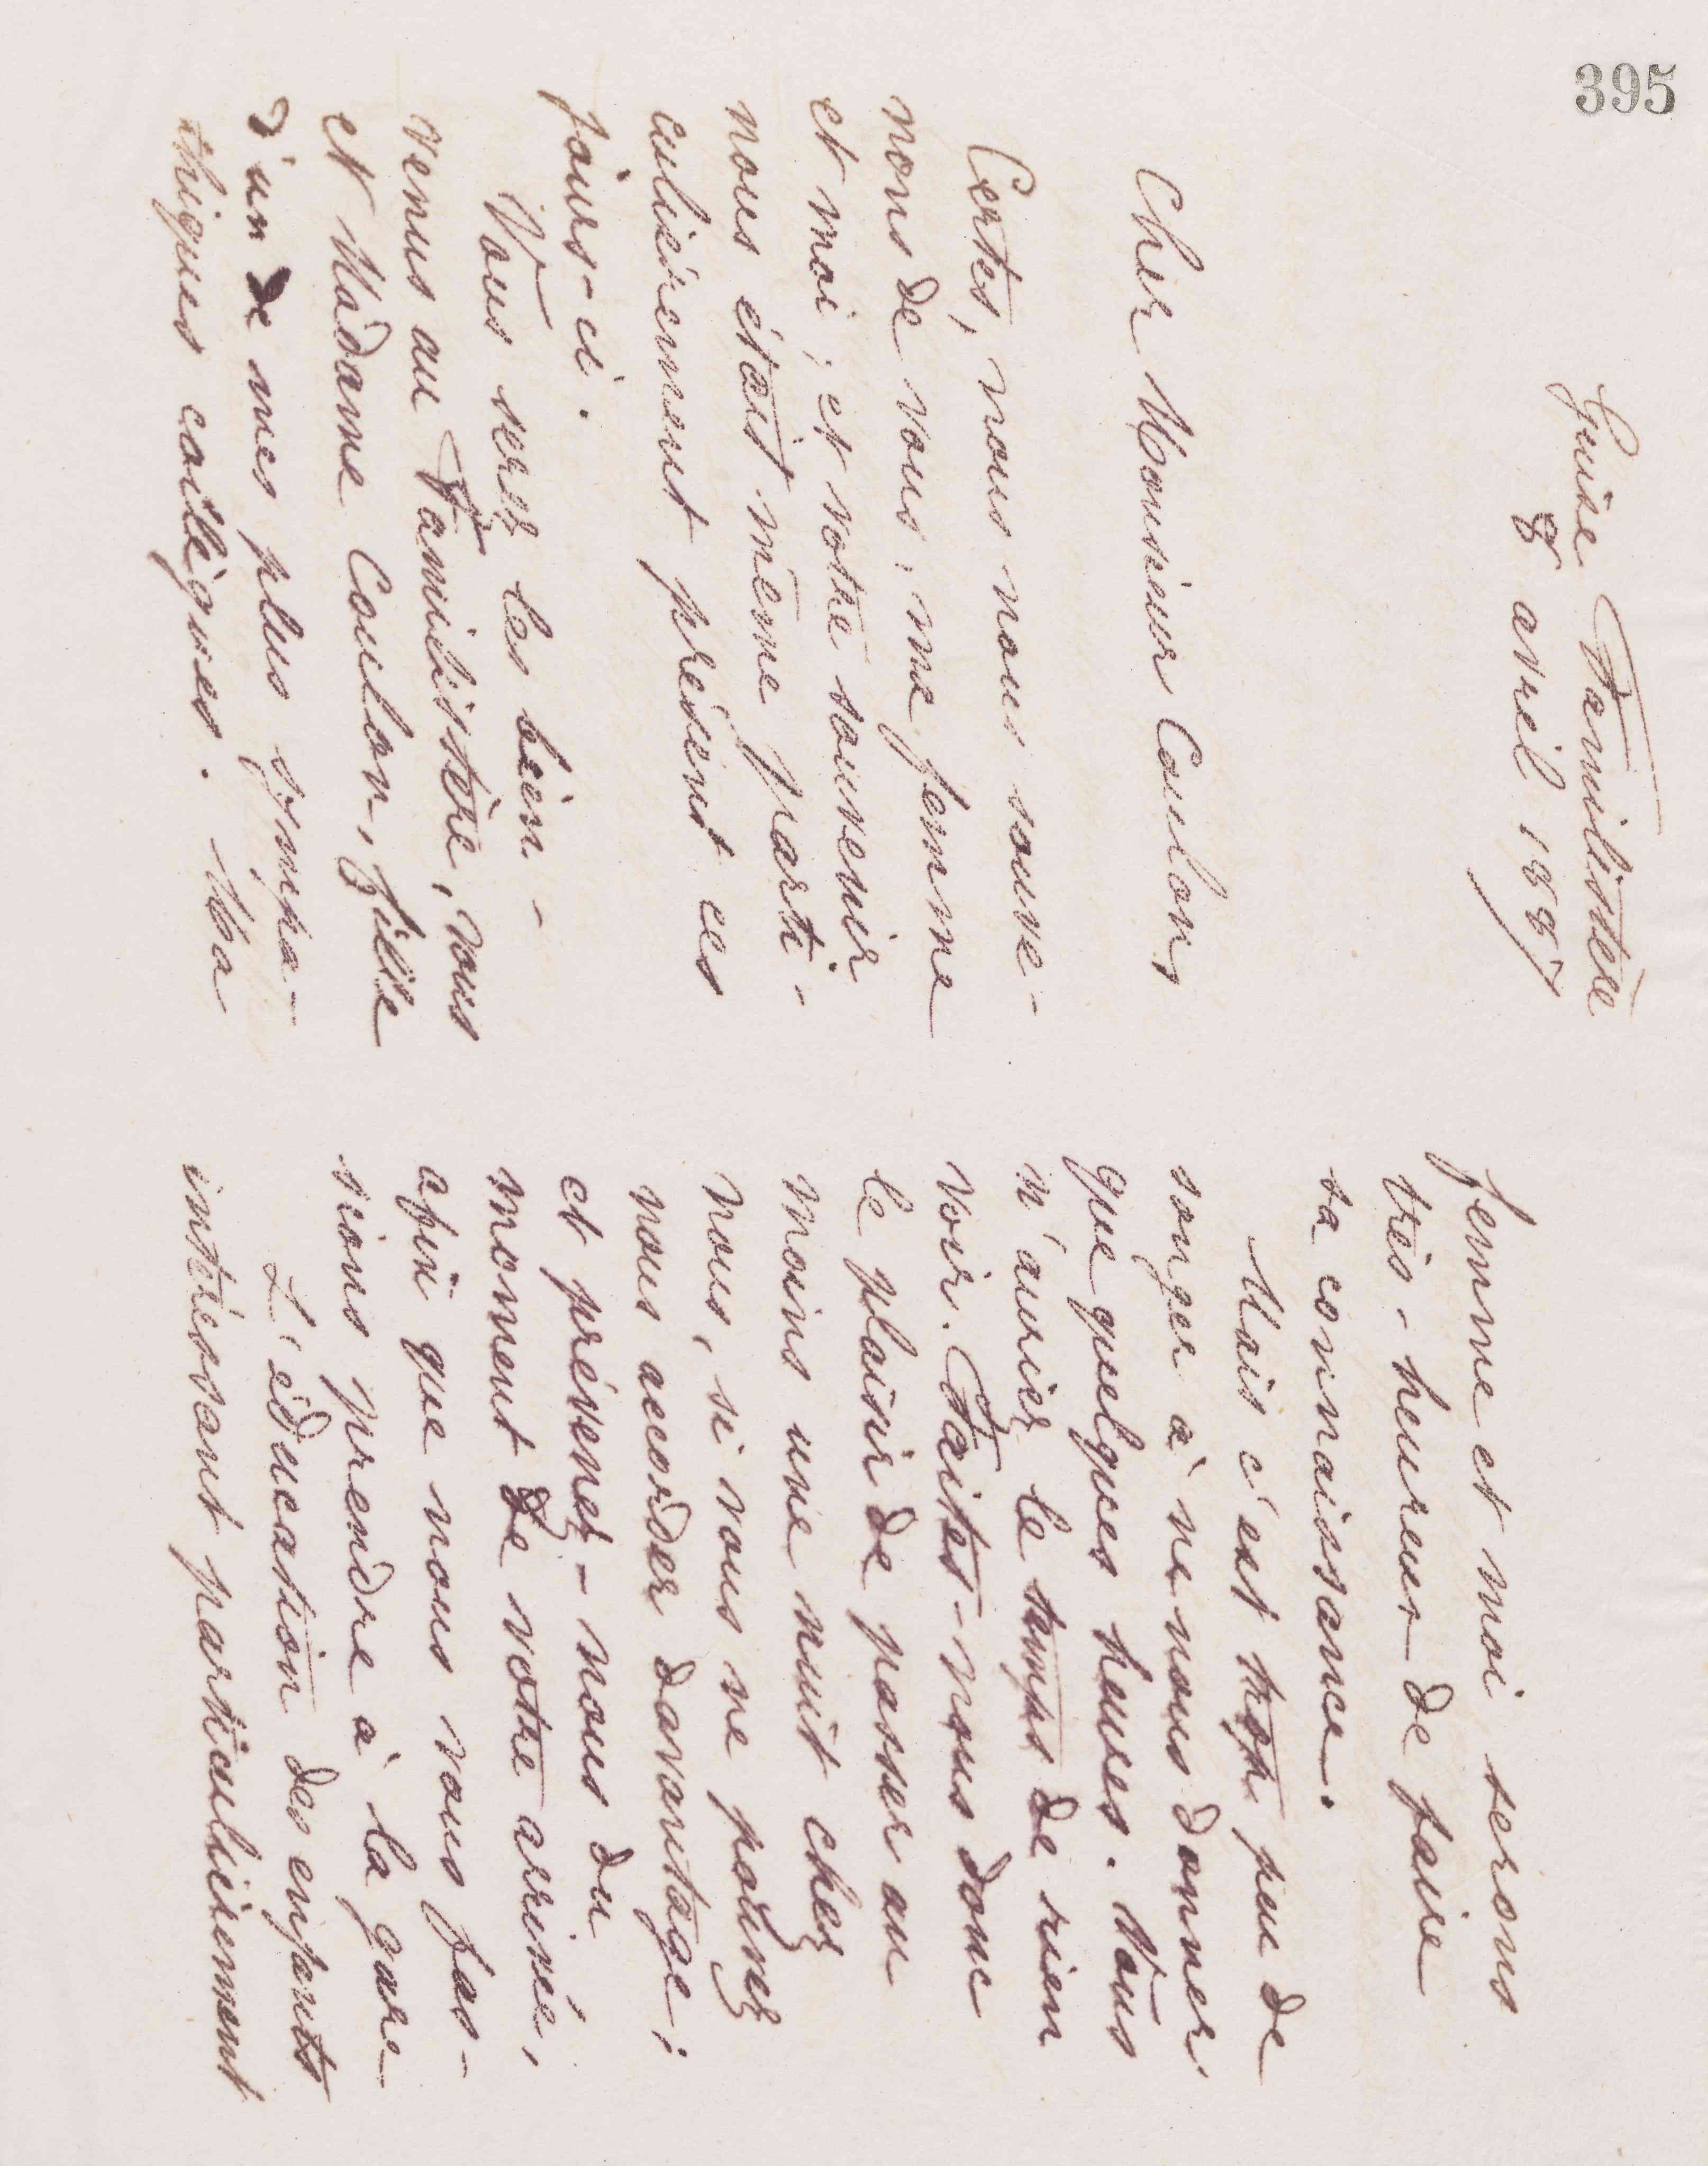 395
Guise Familistère
8 avril 1887
Cher Monsieur Coulon,
Certes, nous nous souve-
nons de vous, ma femme
et moi ; et votre souvenir
nous était même parti-
culièrement présent ces
jours-ci.
Vous serez les bien-
venus au Familistère, vous
et Madame Coulon, fille
d'un de mes plus sympa-
thiques collègues. Ma
femme et moi serons
très-heureux de faire
sa connaissance.
Mais c'est trop peu de
songer à ne nous donner
que quelques heures. Vous
n'auriez le temps de rien
voir. Faites-nous donc
le plaisir de passer au
moins une nuit chez
nous, si vous ne pouvez
nous accorder davantage ;
et prévenez-nous du
moment de votre arrivée,
afin que nous vous fas-
sions prendre à la gare.
L'éducation des enfants
intéressant particulièrement